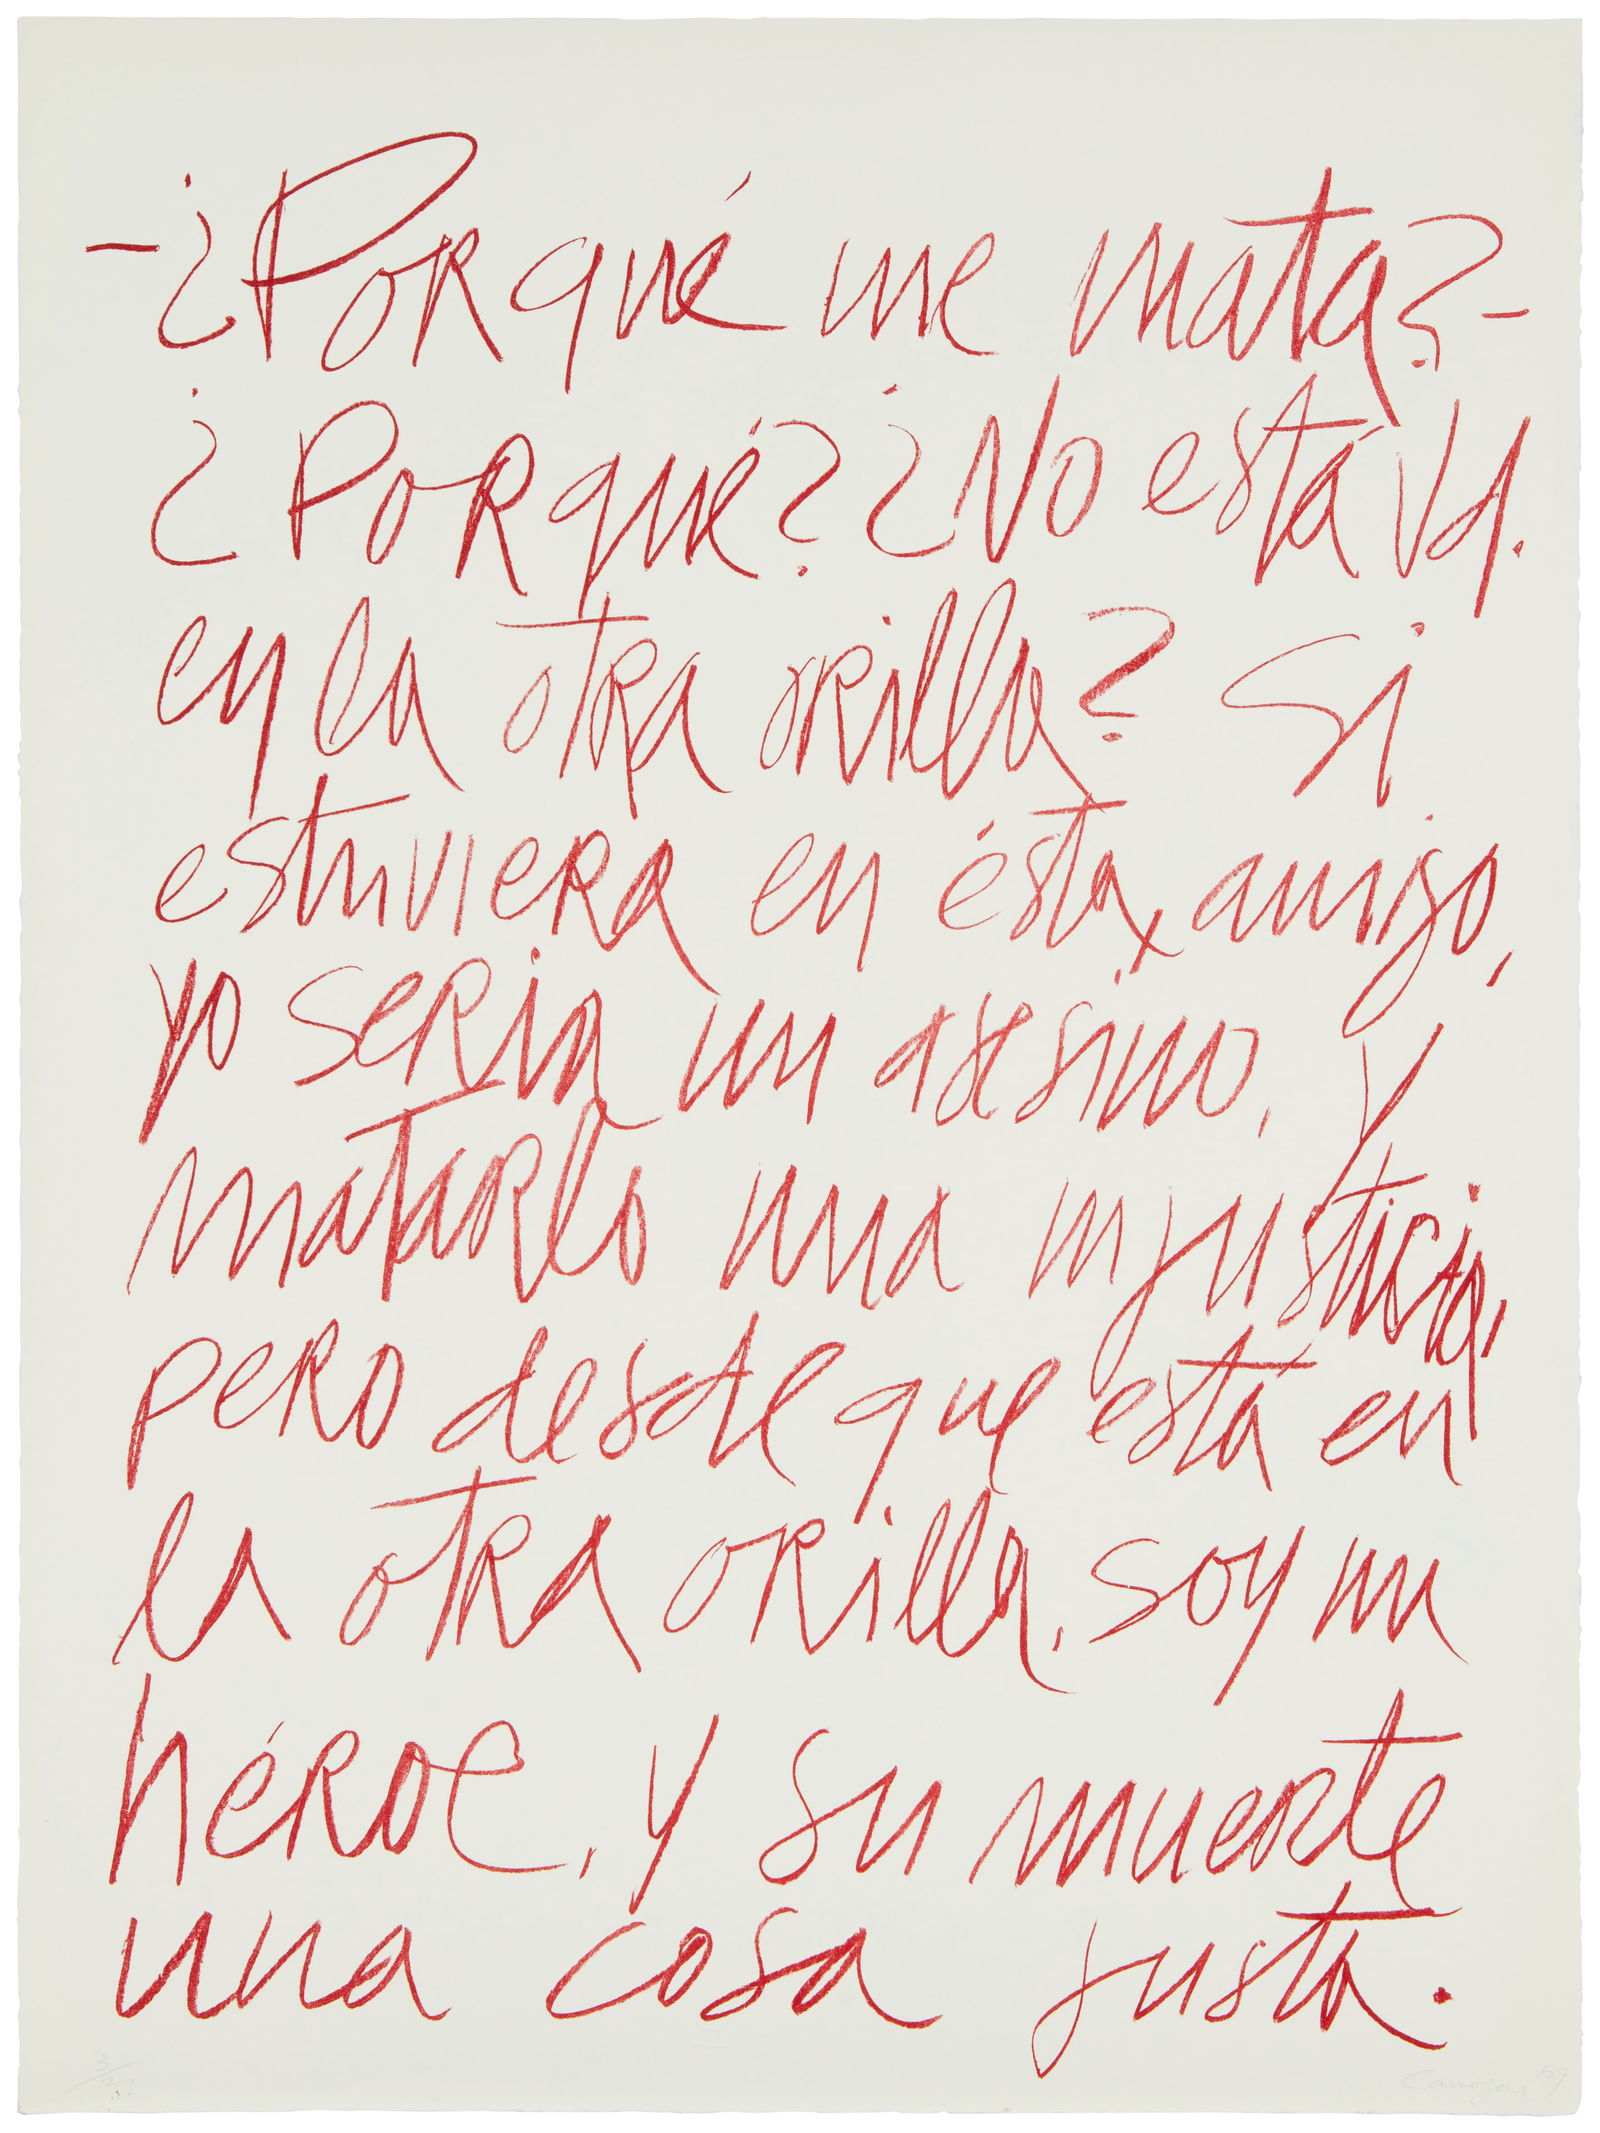 -¿Porqué me mata?-
¿Porqué? ¿No está Vd.
en la otra orilla? Si
estuviera en ésta, amigo,
yo sería un asesino, y
matarlo una injusticia,
pero desde que está en
la otra orilla, soy un
héroe, y su muerte
una cosa justa.
3/20
Canogar '69